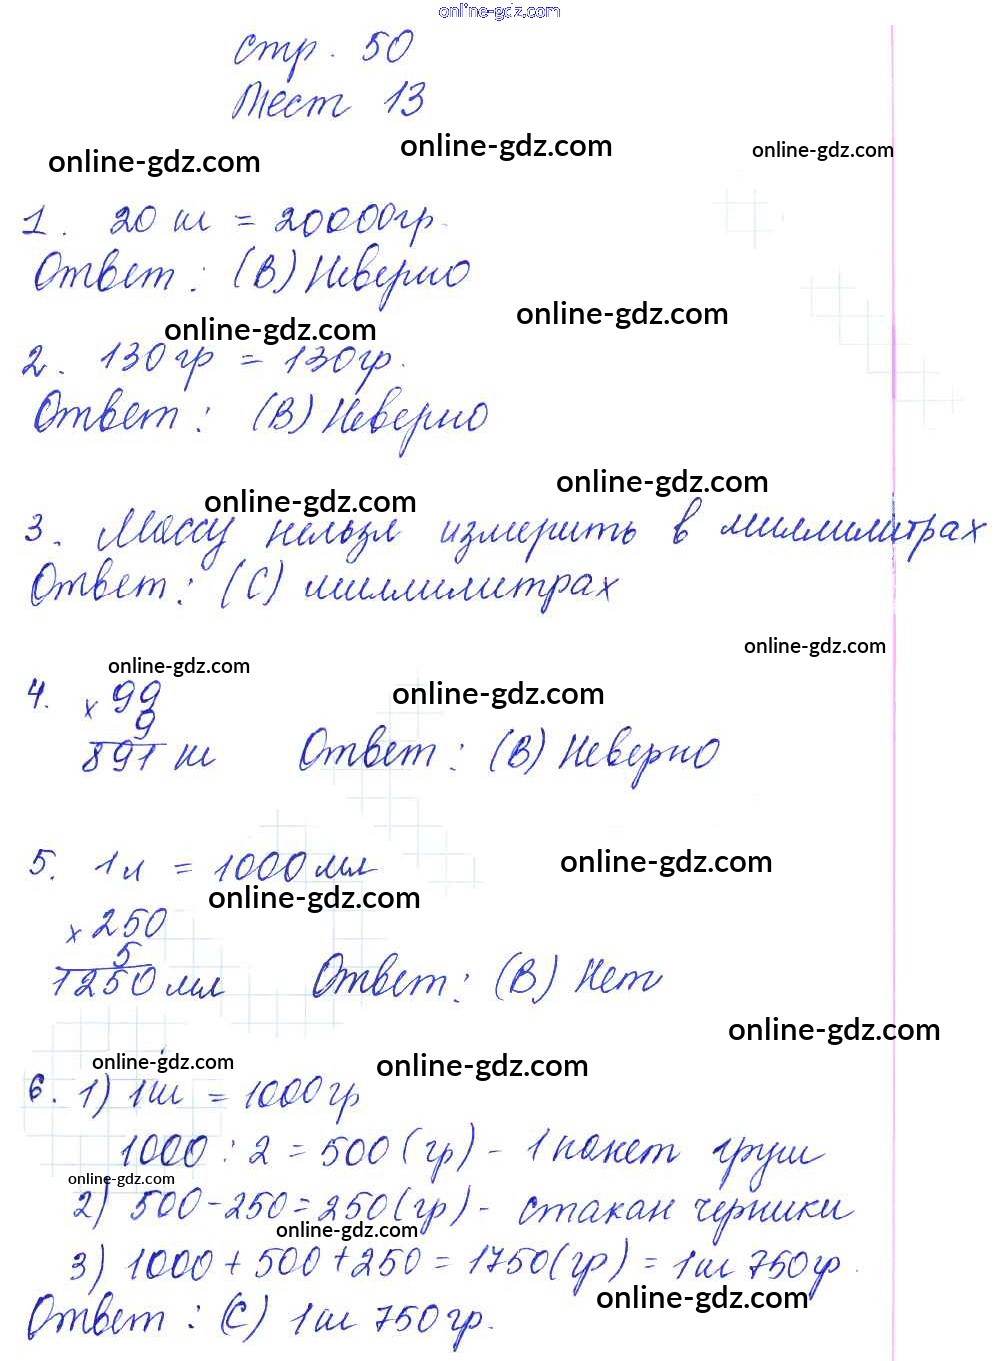 online-gdz.com
стр. 50
Тест 13
online-gdz.com online-gdz.com online-gdz.com
1. 20 кг = 20000гр.
Ответ: (В) Неверно
online-gdz.com online-gdz.com
2. 130 гр = 130гр.
Ответ: (В) Неверно
online-gdz.com online-gdz.com
3. Массу нельзя измерить в миллилитрах
Ответ: (С) миллилитрах
online-gdz.com online-gdz.com online-gdz.com
4. x 99
9
891 кг Ответ: (В) Неверно
5. 1л = 1000мл online-gdz.com
online-gdz.com
x 250
5
1250 мл Ответ: (В) Нет
online-gdz.com
online-gdz.com online-gdz.com
6. 1) 1кг = 1000гр
1000 : 2 = 500 (гр) - 1 пакет груш
online-gdz.com
2) 500 - 250 = 250 (гр) - стакан черники
online-gdz.com
3) 1000 + 500 + 250 = 1750 (гр) = 1кг 750гр.
online-gdz.com
Ответ: (С) 1кг 750гр.